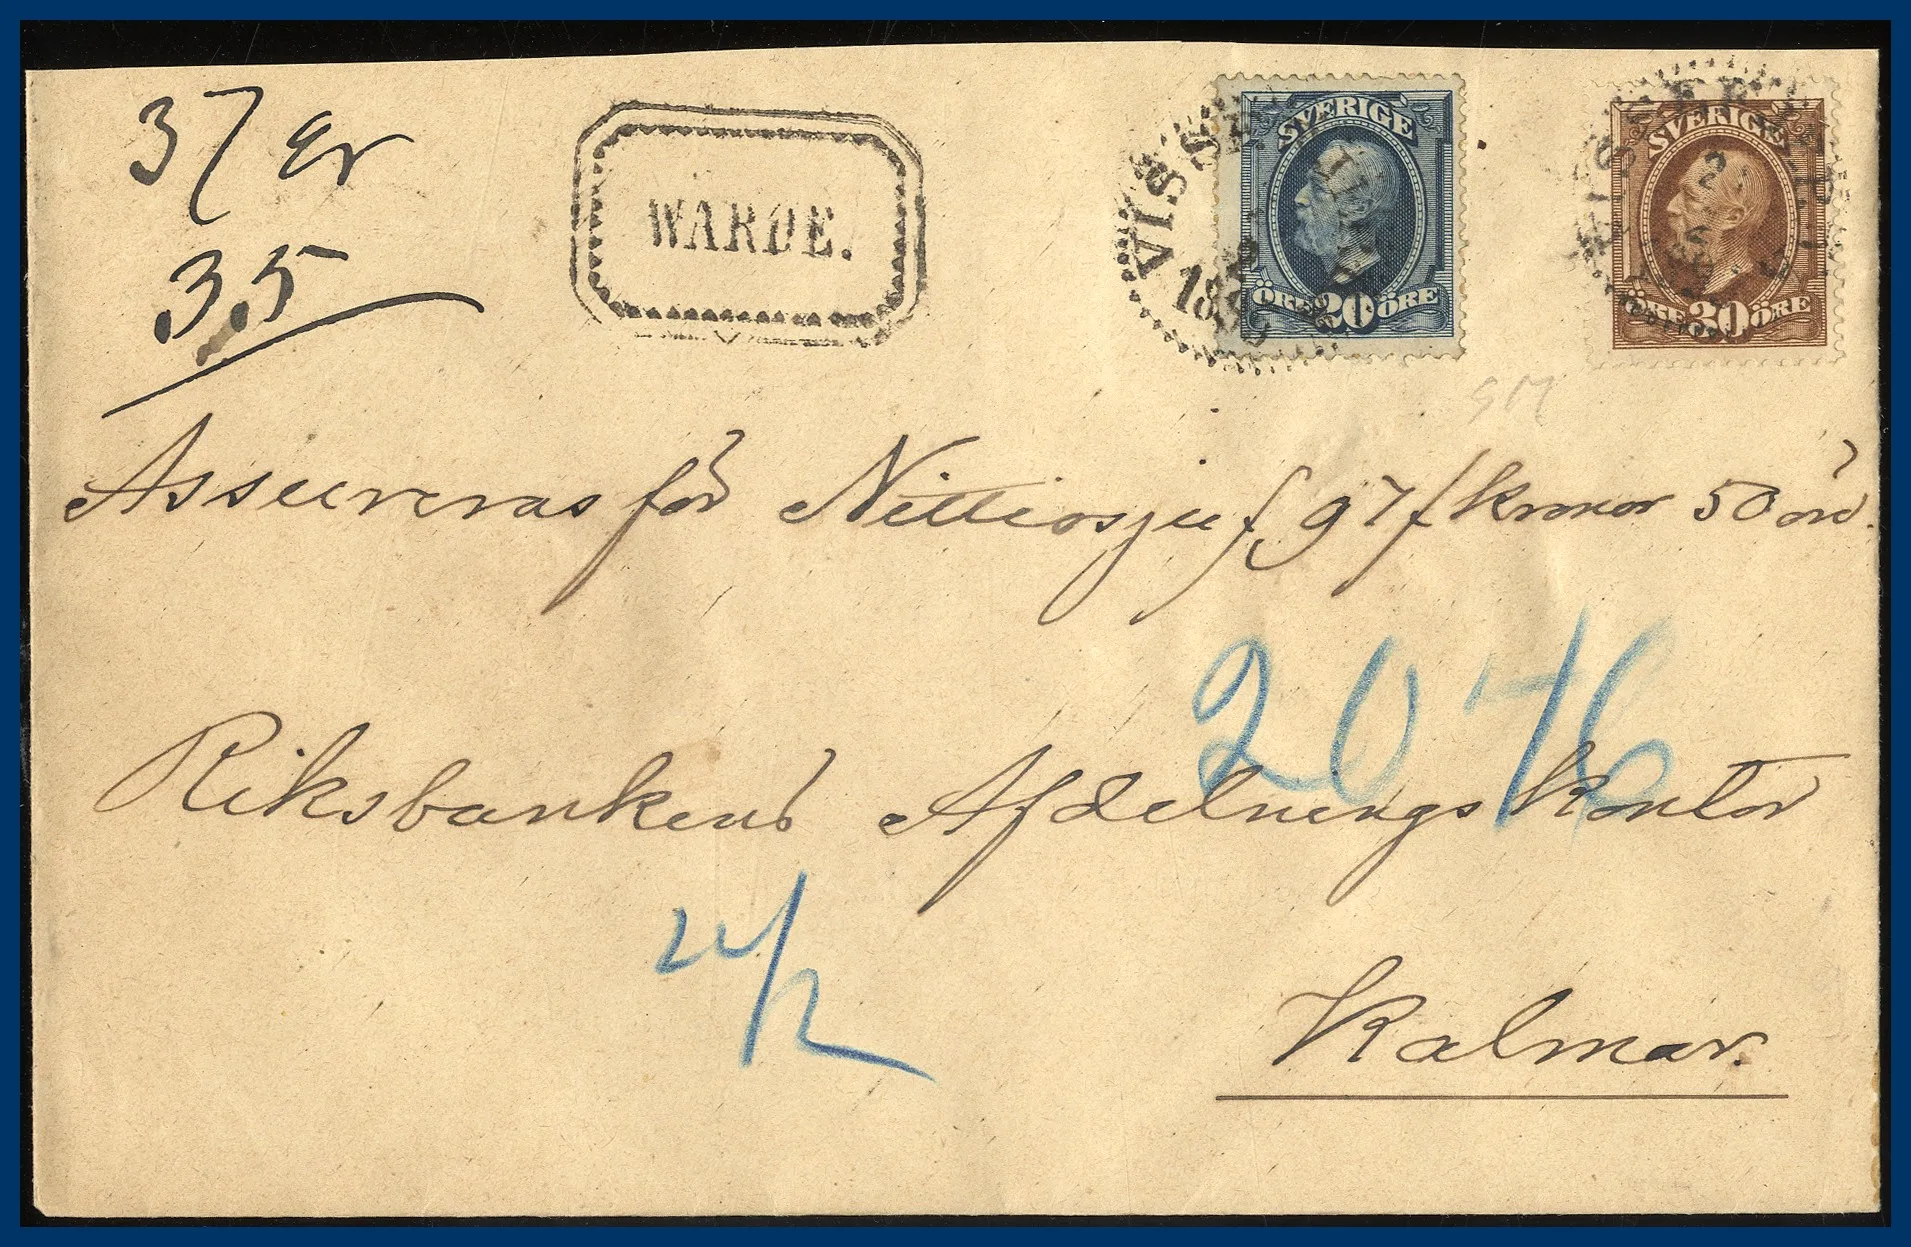 37 Er
3,5
WARDE.
SVERIGE
ÖRE 20 ÖRE
SVERIGE
ÖRE 30 ÖRE
SM
Assureras för Nittiosju /97/ kronor 50 öre.
2076
Riksbankens Afdelningskontor
Kalmar.